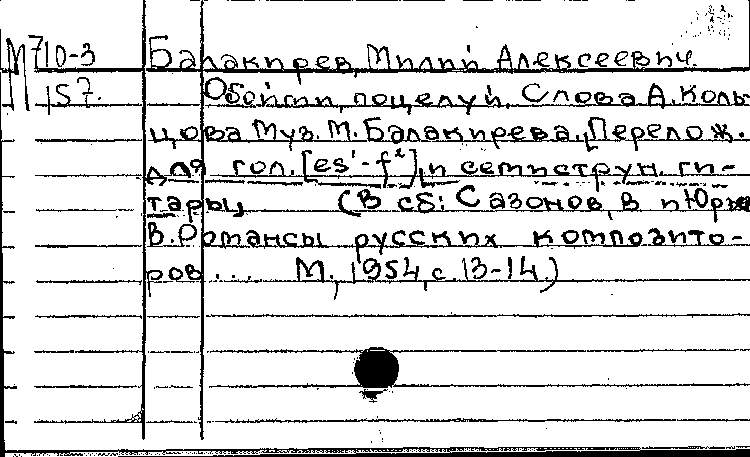 М 710-3 Балакирев, Милий Алексеевич.
157. Обойми, поцелуй. Слова А. Коль-
цова Муз. М. Балакирева. [Перелож.
для гол. [es'-f²] и семиструн. ги-
тары,  (В сб: Сазонов, В и Юрь
В. Романсы русских композито-
ров... М, 1954, с. 13-14.)